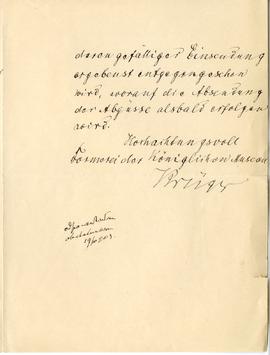 deren gefälliger Einsendung
ergebenst entgegengesehen
wird, worauf die Absendung
der Abgüsse alsbald erfolgen
wird.
Hochachtungsvoll
Formerei der Königlichen Museen
Krüger